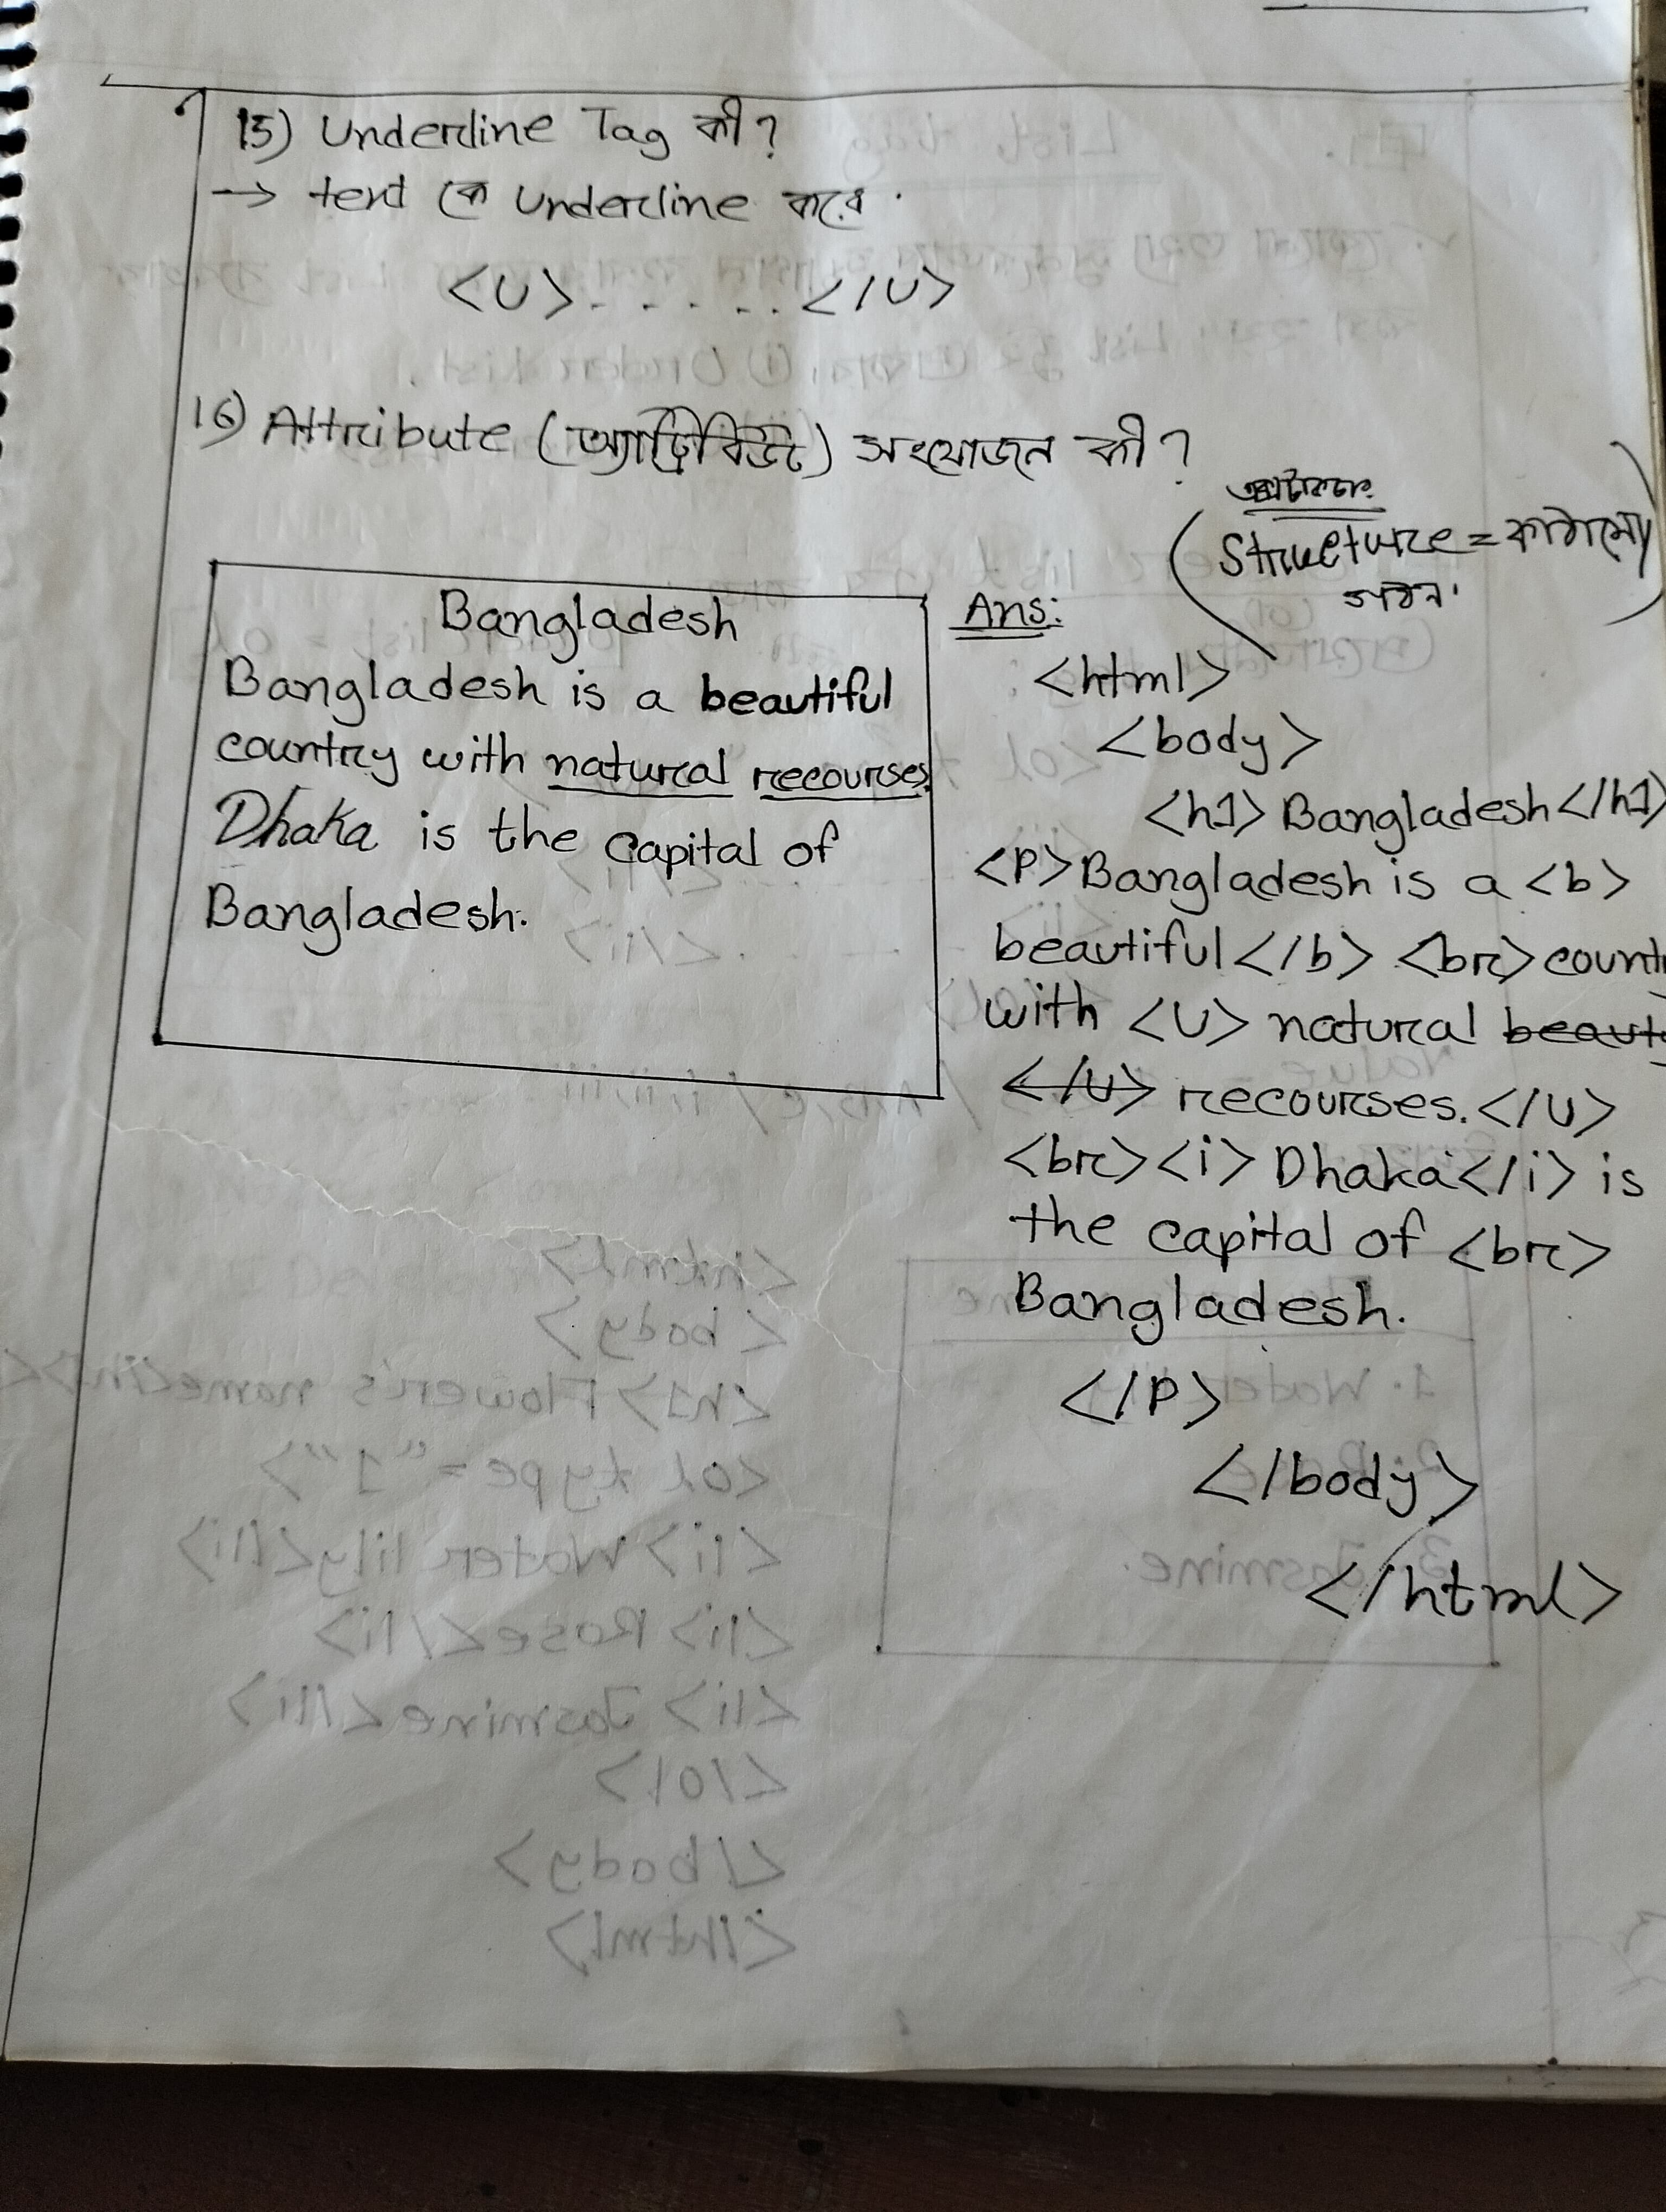 15) Underline Tag কী?
→ text কে Underline করে.
<U>. . . . . .</U>
16) Attribute (অ্যাট্রিবিউট) সংযোজন কী?
(Structure = কাঠামো
গঠন)
Bangladesh
Bangladesh is a beautiful
country with natural recourses.
Dhaka is the capital of
Bangladesh.
Ans:
<html>
<body>
<h1> Bangladesh </h1>
<P> Bangladesh is a <b>
beautiful </b> <br>
with <U> natural
</U> recourses. </U>
<br> <i> Dhaka </i> is
the capital of <br>
Bangladesh.
</P>
</body>
</html>